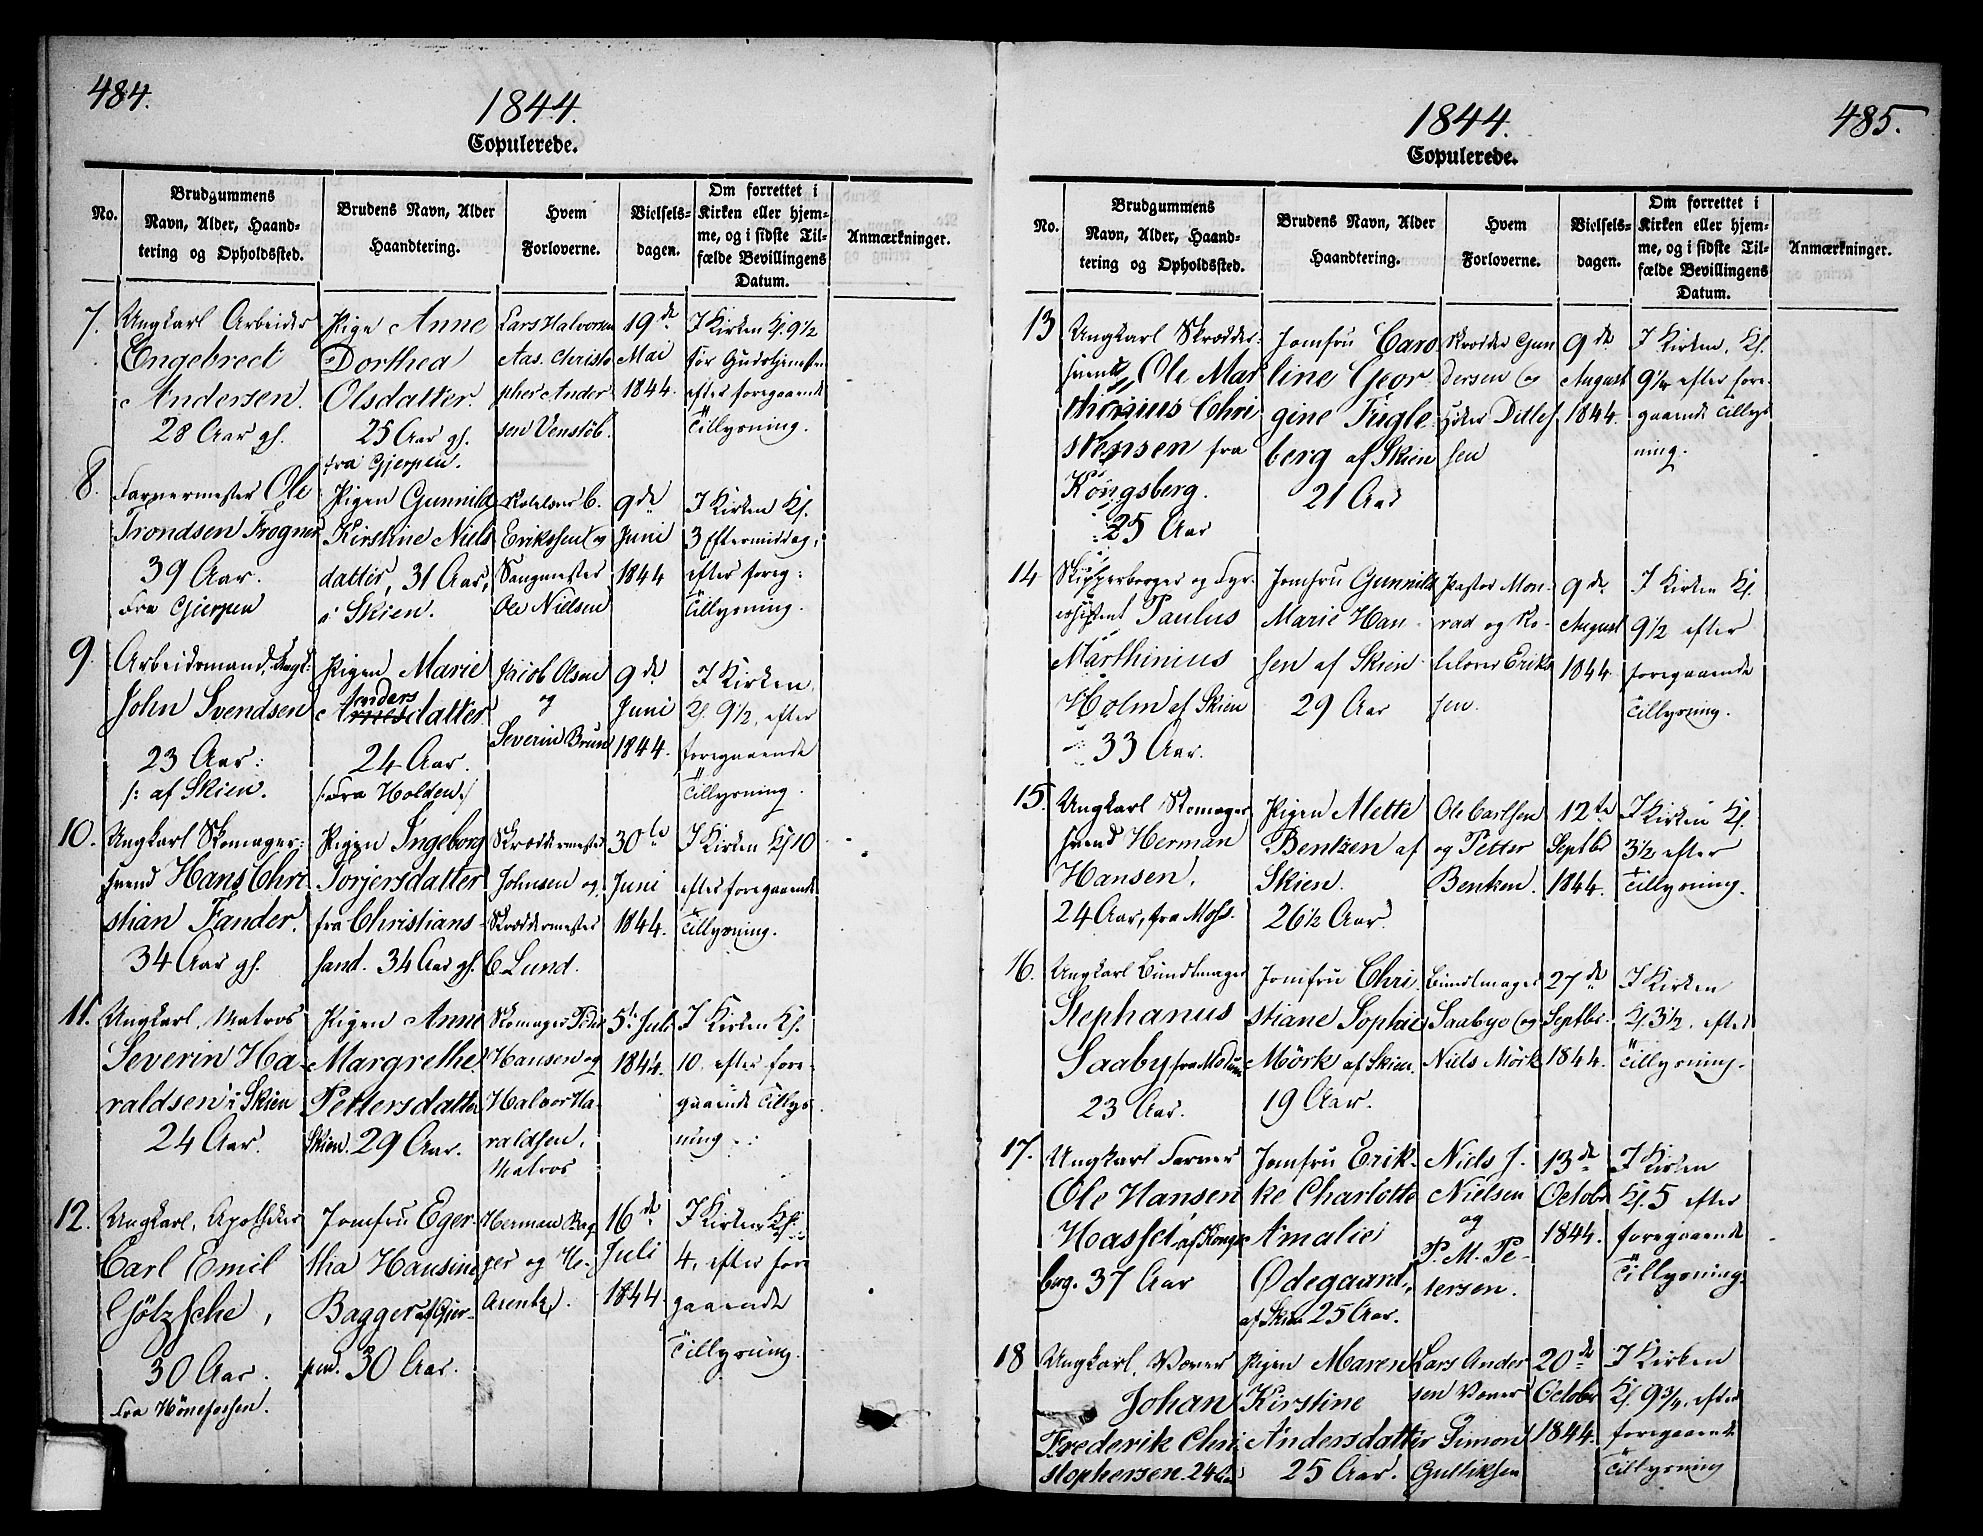 484.
1844.
Copulerede.
No.
Brudgummens
Navn, Alder, Haand-
tering og Opholdssted.
Brudens Navn, Alder
Haandtering.
Hvem
Forloverne.
Vielsels-
dagen.
Om forrettet i
Kirken eller hjem-
me, og i sidste Til-
fælde Bevillingens
Datum.
Anmærkninger.
7.
Ungkarl Arbeider
Engebrect
Andersen.
28 Aar gl.
Pige Anne
Dorthea
Olsdatter.
25 Aar gl.
fra Gjerpen.
Lars Halvorsen
Aas. Christo
pher Ander
sen Venstöb.
19de
Mai
1844.
I Kirken Kl. 9½
før Gudstjenesten
efter foregaaende
Tillysning.
8.
Farvermester Ole
Trondsen Frogner
39 Aar.
Fra Gjerpen
Pigen Gunnild
Kirstine Niels
datter, 31 Aar,
i Skien.
C.
Erikssen og
Sangmester
Ole Nielsen
9de
Juni
1844
I Kirken Kl.
3 Eftermiddag,
efter foreg:
Tillysning.
9.
Arbeidsmand, Ungk:
John Svendsen
23 Aar:
/: af Skien.
Pigen Marie
Anders
datter
24 Aar.
/: Fra Holden :/
Jacob Olsen
og
Severin Brun
9de
Juni
1844.
I Kirken,
Kl. 9½, efter
foregaaende
Tillysning.
10.
Ungkarl Skomager-
svend Hans Chri
stian Fander.
34 Aar gl.
Pigen Ingeborg
Torjersdatter
fra Christians-
sand. 34 Aar gl.
Skræddermester
Johnsen og
Skræddermester
C. Lund.
30te
Juni
1844.
I Kirken Kl 10
efter foregaaende
Tillysning.
11.
Ungkarl, Matros
Severin Ha-
raldsen i Skien
24 Aar.
Pigen Anne
Margrethe
Pettersdatter
Skien. 29 Aar.
Skomager Peter
Hansen og
Halvor Ha-
raldsen.
Matros
5te Juli
1844.
I Kirken Kl.
10, efter fore-
gaaende Tillys
ning.
12.
Ungkarl, Apotheker
Carl Emil
Götzsche,
30 Aar.
Fra Hönefossen.
Jomfru Eger-
thia Hansine
Bagger af Gjer-
pen. 30 Aar.
Herman Bag
ger og H.
Arentz.
16de
Juli
1844.
I Kirken Kl.
4, efter fore
gaaende
Tillysning.
1844.
485.
Copulerede.
No.
Brudgummens
Navn, Alder, Haand-
tering og Opholdssted.
Brudens Navn, Alder
Haandtering.
Hvem
Forloverne.
Vielsels-
dagen.
Om forrettet i
Kirken eller hjem-
me, og i sidste Til-
fælde Bevillingens
Datum.
Anmærkninger.
13
Ungkarl Skrædder-
svend Ole Mar
thinius Chri
stensen fra
Kongsberg.
25 Aar
Jomfru Caro
line Geor
gine Fugle
berg af Skien
21 Aar
Skrædder Gun
dersen og
Peder Ditlef
sen
9de
August
1844.
I Kirken, Kl.
9½ efter fore-
gaaende Tillys
ning.
14
Skipperborger og Fyr-
assistent Paulus
Marthinius
Holm af Skien
33 Aar.
Jomfru Gunnild
Marie Han-
sen af Skien
29 Aar
Pastor Mon-
rad og
Erik
sen.
9de
August
1844.
I Kirken Kl.
9½ efter
foregaaende
Tillysning.
15.
Ungkarl Skomager
svend Herman
Hansen,
24 Aar, fra Moss.
Pigen Mette
Bentzen af
Skien.
26½ Aar.
Ole Carlsen
og Petter
Bentzen.
12te
Septbr
1844.
I Kirken Kl.
3½ efter
Tillysning.
16.
Ungkarl Bundtmager
Stephanus
Saaby fra Modum
23 Aar.
Jomfru Chri
stiane Sophie
Mörk af Skien.
19 Aar.
Bundtmager
Saabye og
Niels Mörk
27de
Septbr.
1844.
I Kirken
Kl. 3½, efter
Tillysning.
17.
Ungkarl Farver
Ole Hansen
Hassel af Kongs
berg. 37 Aar
Jomfru Erik-
ke Charlotte
Amalie
Ödegaard,
af Skien 25 Aar.
Niels J.
Nielsen
og
P. M. Pe-
tersen.
13de
Octobr
1844.
I Kirken
Kl. 5 efter
foregaaende
Tillysning.
18
Ungkarl, Væver
Johan
Frederik Chri
stophersen. 24 Aar
Pigen Maren
Kirstine
Andersdatter
25 Aar.
Lars Ander
sen Væver
Simon
Gulliksen
20de
October
1844.
I Kirken
Kl. 9¾, efter
foregaaende
Tillysning